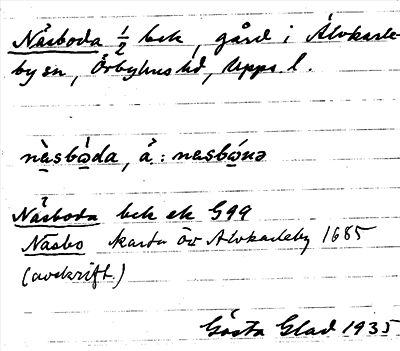 Näsboda 1/2 bck, gård i Älvkarle-
by sn, Örbyhus hd, Upps. l.
nä̀sbò̠da, å: nasbó̠nə
Näsboda bck ek G99
Nasbo karta öv Älvkarleby 1685
(avskrift)
Gösta Glad 1935